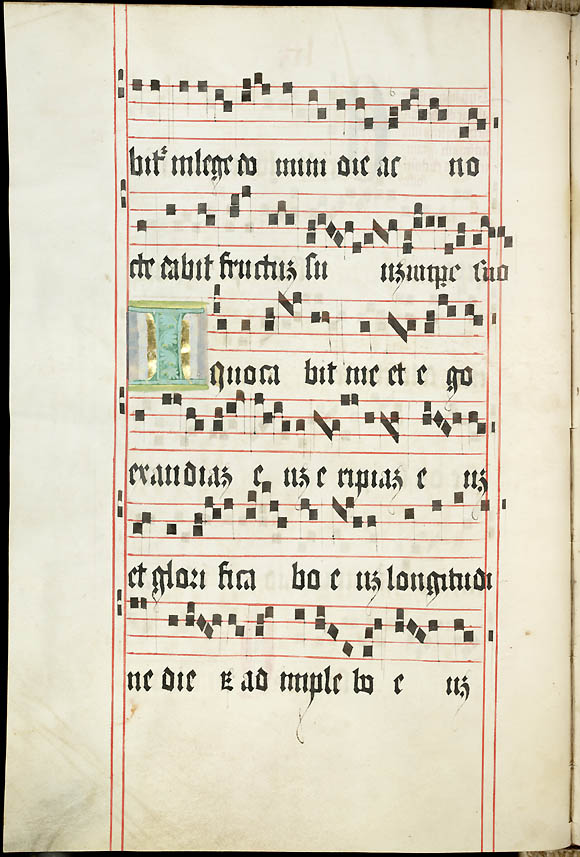 bit᷑ in lege do mini die ac no
cte dabit fructuz su uz in tpe suo
I quoca bit me et e go
exaudiaz e uz e ripiaz e uz
et glori fica bo e uz longitudi
ne die ꝝ ad imple bo e uz